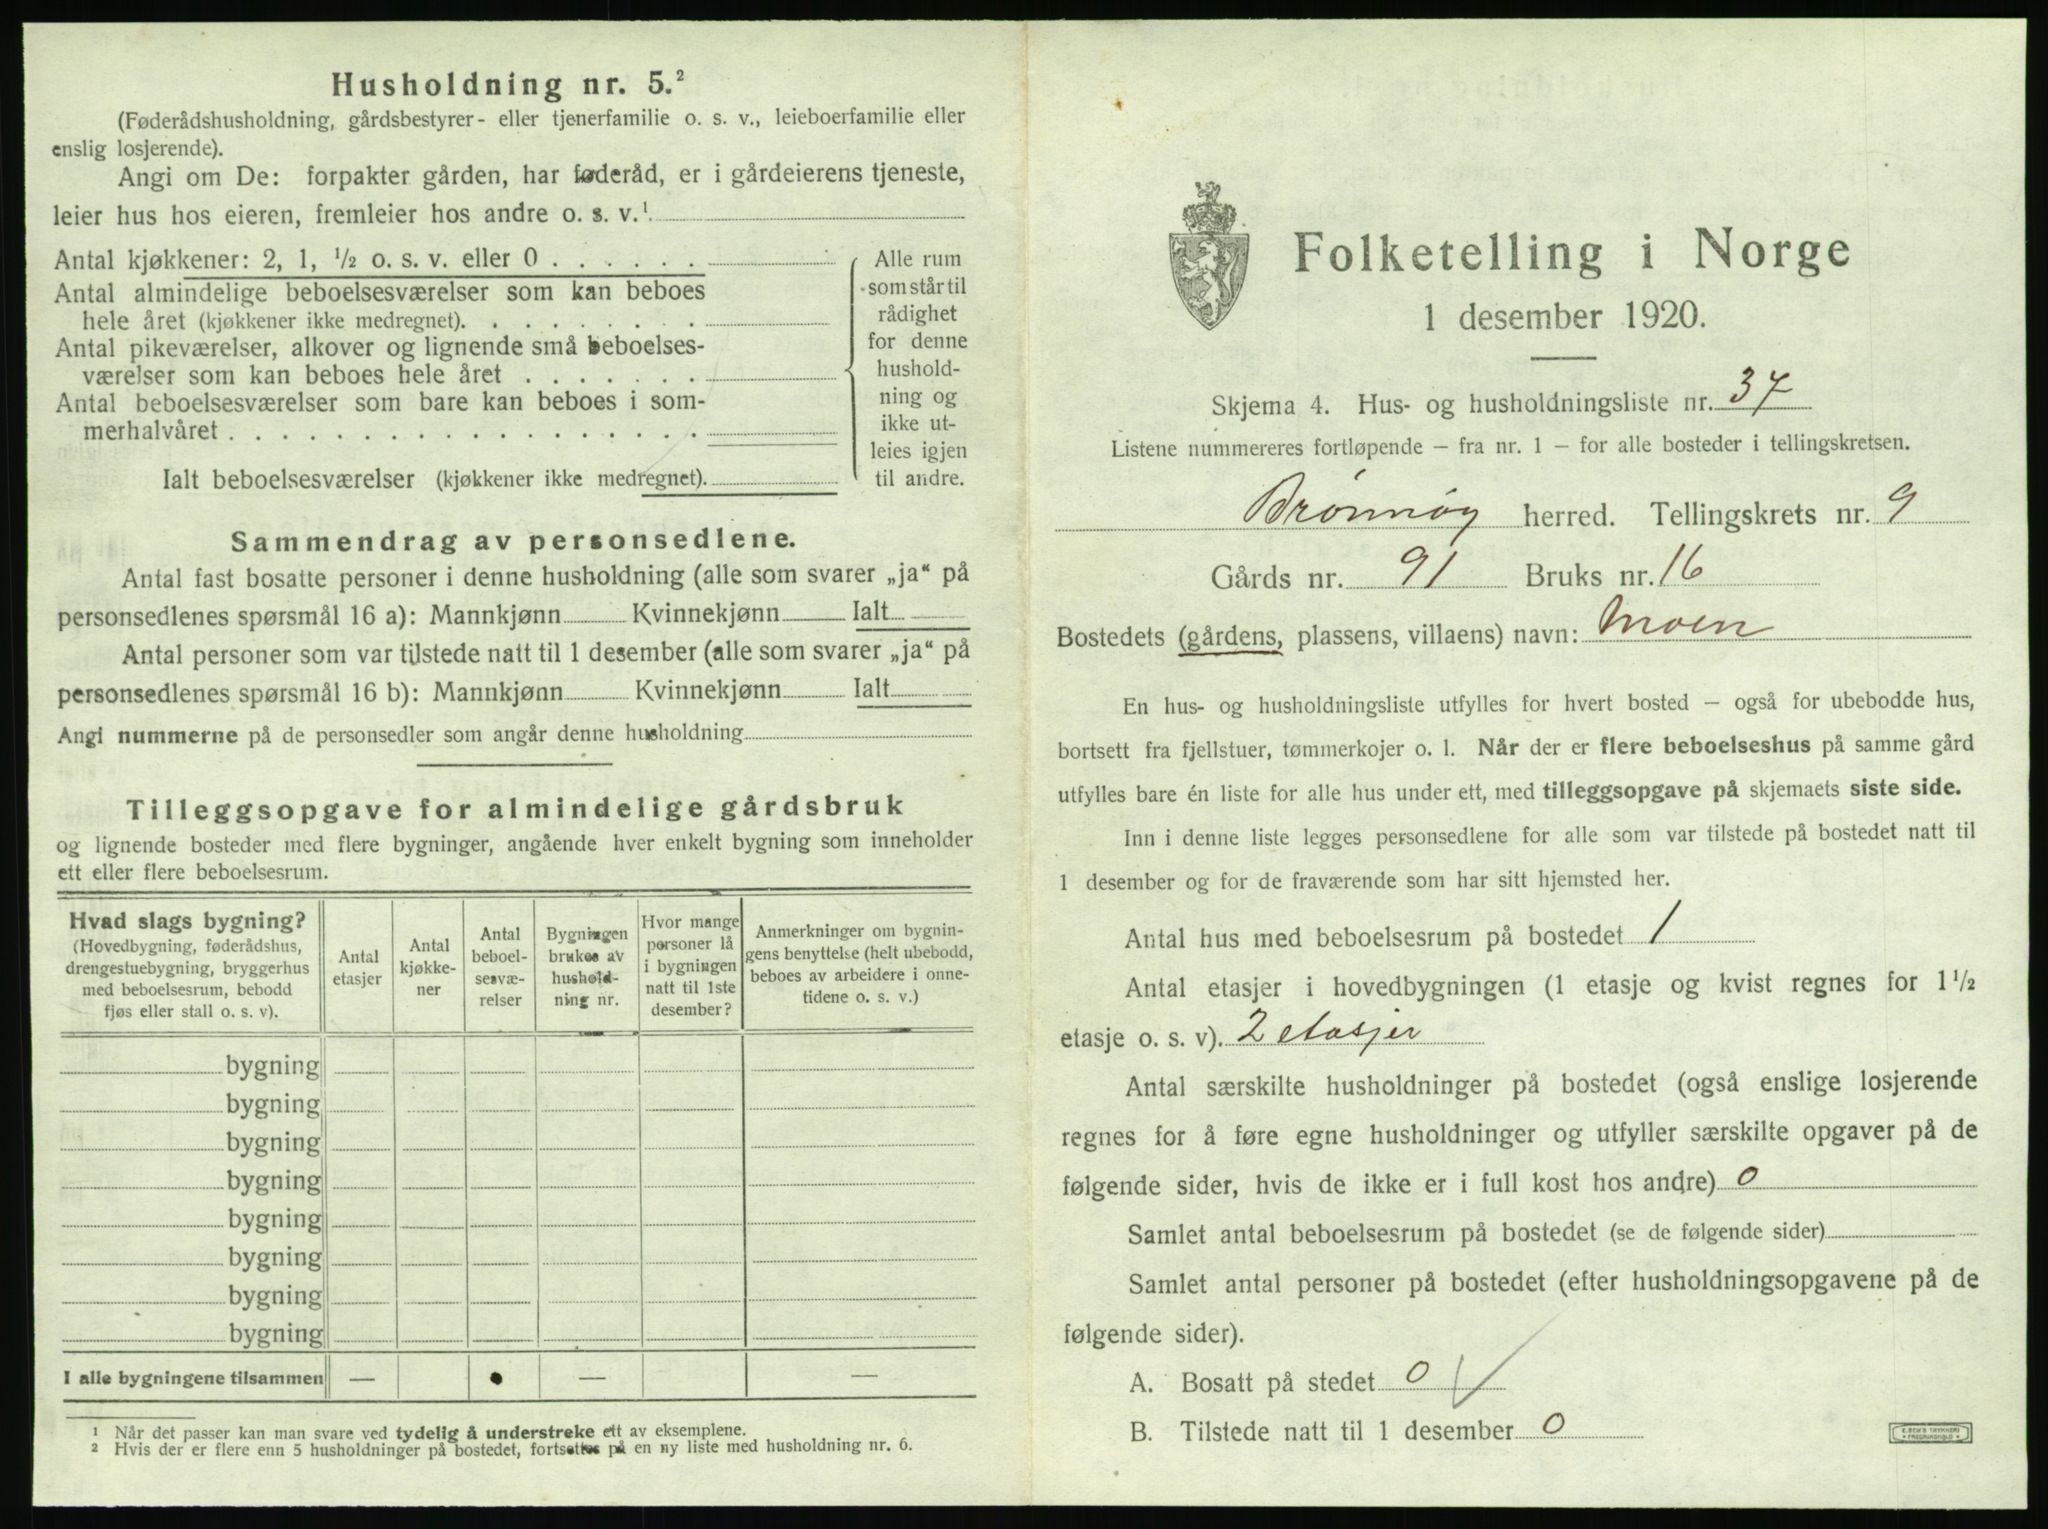 Husholdning nr. 5.²
(Føderådshusholdning, gårdsbestyrer- eller tjenerfamilie o. s. v., leieboerfamilie eller
enslig losjerende).
Angi om De: forpakter gården, har føderåd, er i gårdeierens tjeneste,
leier hus hos eieren, fremleier hos andre o. s. v.¹
Antal kjøkkener: 2, 1, ½ o. s. v. eller 0 . . . . . .
Antal almindelige beboelsesværelser som kan beboes
hele året (kjøkkener ikke medregnet). . . . . . . . .
Antal pikeværelser, alkover og lignende små beboelses-
værelser som kan beboes hele året . . . . . . .
Antal beboelsesværelser som bare kan beboes i som-
merhalvåret . . . . . . . . . . . . . . . . . .
Ialt beboelsesværelser (kjøkkener ikke medregnet).
Alle rum
som står til
rådighet
for denne
hushold-
ning og
ikke ut-
leies igjen
til andre.
Sammendrag av personsedlene.
Antal fast bosatte personer i denne husholdning (alle som svarer „ja“ på
personsedlenes spørsmål 16 a): Mannkjønn Kvinnekjønn Ialt
Antal personer som var tilstede natt til 1 desember (alle som svarer „ja“ på
personsedlenes spørsmål 16 b): Mannkjønn Kvinnekjønn Ialt
Angi nummerne på de personsedler som angår denne husholdning
Tilleggsopgave for almindelige gårdsbruk
og lignende bosteder med flere bygninger, angående hver enkelt bygning som inneholder
ett eller flere beboelsesrum.
Hvad slags bygning?
(Hovedbygning, føderådshus,
drengestuebygning, bryggerhus
med beboelsesrum, bebodd
fjøs eller stall o. s. v).
Antal
etasjer
Antal
kjøkke-
ner
Antal
beboel-
sesvæ-
relser
Bygningen
brukes av
hushold-
ning nr.
Hvor mange
personer lå
i bygningen
natt til 1ste
desember?
Anmerkninger om bygnin-
gens benyttelse (helt ubebodd,
beboes av arbeidere i onne-
tidene o. s. v.)
bygning
bygning
bygning
bygning
bygning
bygning
bygning
bygning
I alle bygningene tilsammen — — —
¹ Når det passer kan man svare ved tydelig å understreke ett av eksemplene.
² Hvis der er flere enn 5 husholdninger på bostedet, fortsettes på en ny liste med husholdning nr. 6.
Folketelling i Norge
1 desember 1920.
Skjema 4. Hus- og husholdningsliste nr. 37
Listene nummereres fortløpende — fra nr. 1 — for alle bosteder i tellingskretsen.
Brønnøy herred. Tellingskrets nr. 9
Gårds nr. 91 Bruks nr. 16
Bostedets (gårdens, plassens, villaens) navn: Moen
En hus- og husholdningsliste utfylles for hvert bosted — også for ubebodde hus,
bortsett fra fjellstuer, tømmerkojer o. l. Når der er flere beboelseshus på samme gård
utfylles bare én liste for alle hus under ett, med tilleggsopgave på skjemaets siste side.
Inn i denne liste legges personsedlene for alle som var tilstede på bostedet natt til
1 desember og for de fraværende som har sitt hjemsted her.
Antal hus med beboelsesrum på bostedet 1
Antal etasjer i hovedbygningen (1 etasje og kvist regnes for 1½
etasje o. s. v). 2 etasjer
Antal særskilte husholdninger på bostedet (også enslige losjerende
regnes for å føre egne husholdninger og utfyller særskilte opgaver på de
følgende sider, hvis de ikke er i full kost hos andre) 0
Samlet antal beboelsesrum på bostedet (se de følgende sider)
Samlet antal personer på bostedet (efter husholdningsopgavene på de
følgende sider).
A. Bosatt på stedet 0
B. Tilstede natt til 1 desember 0